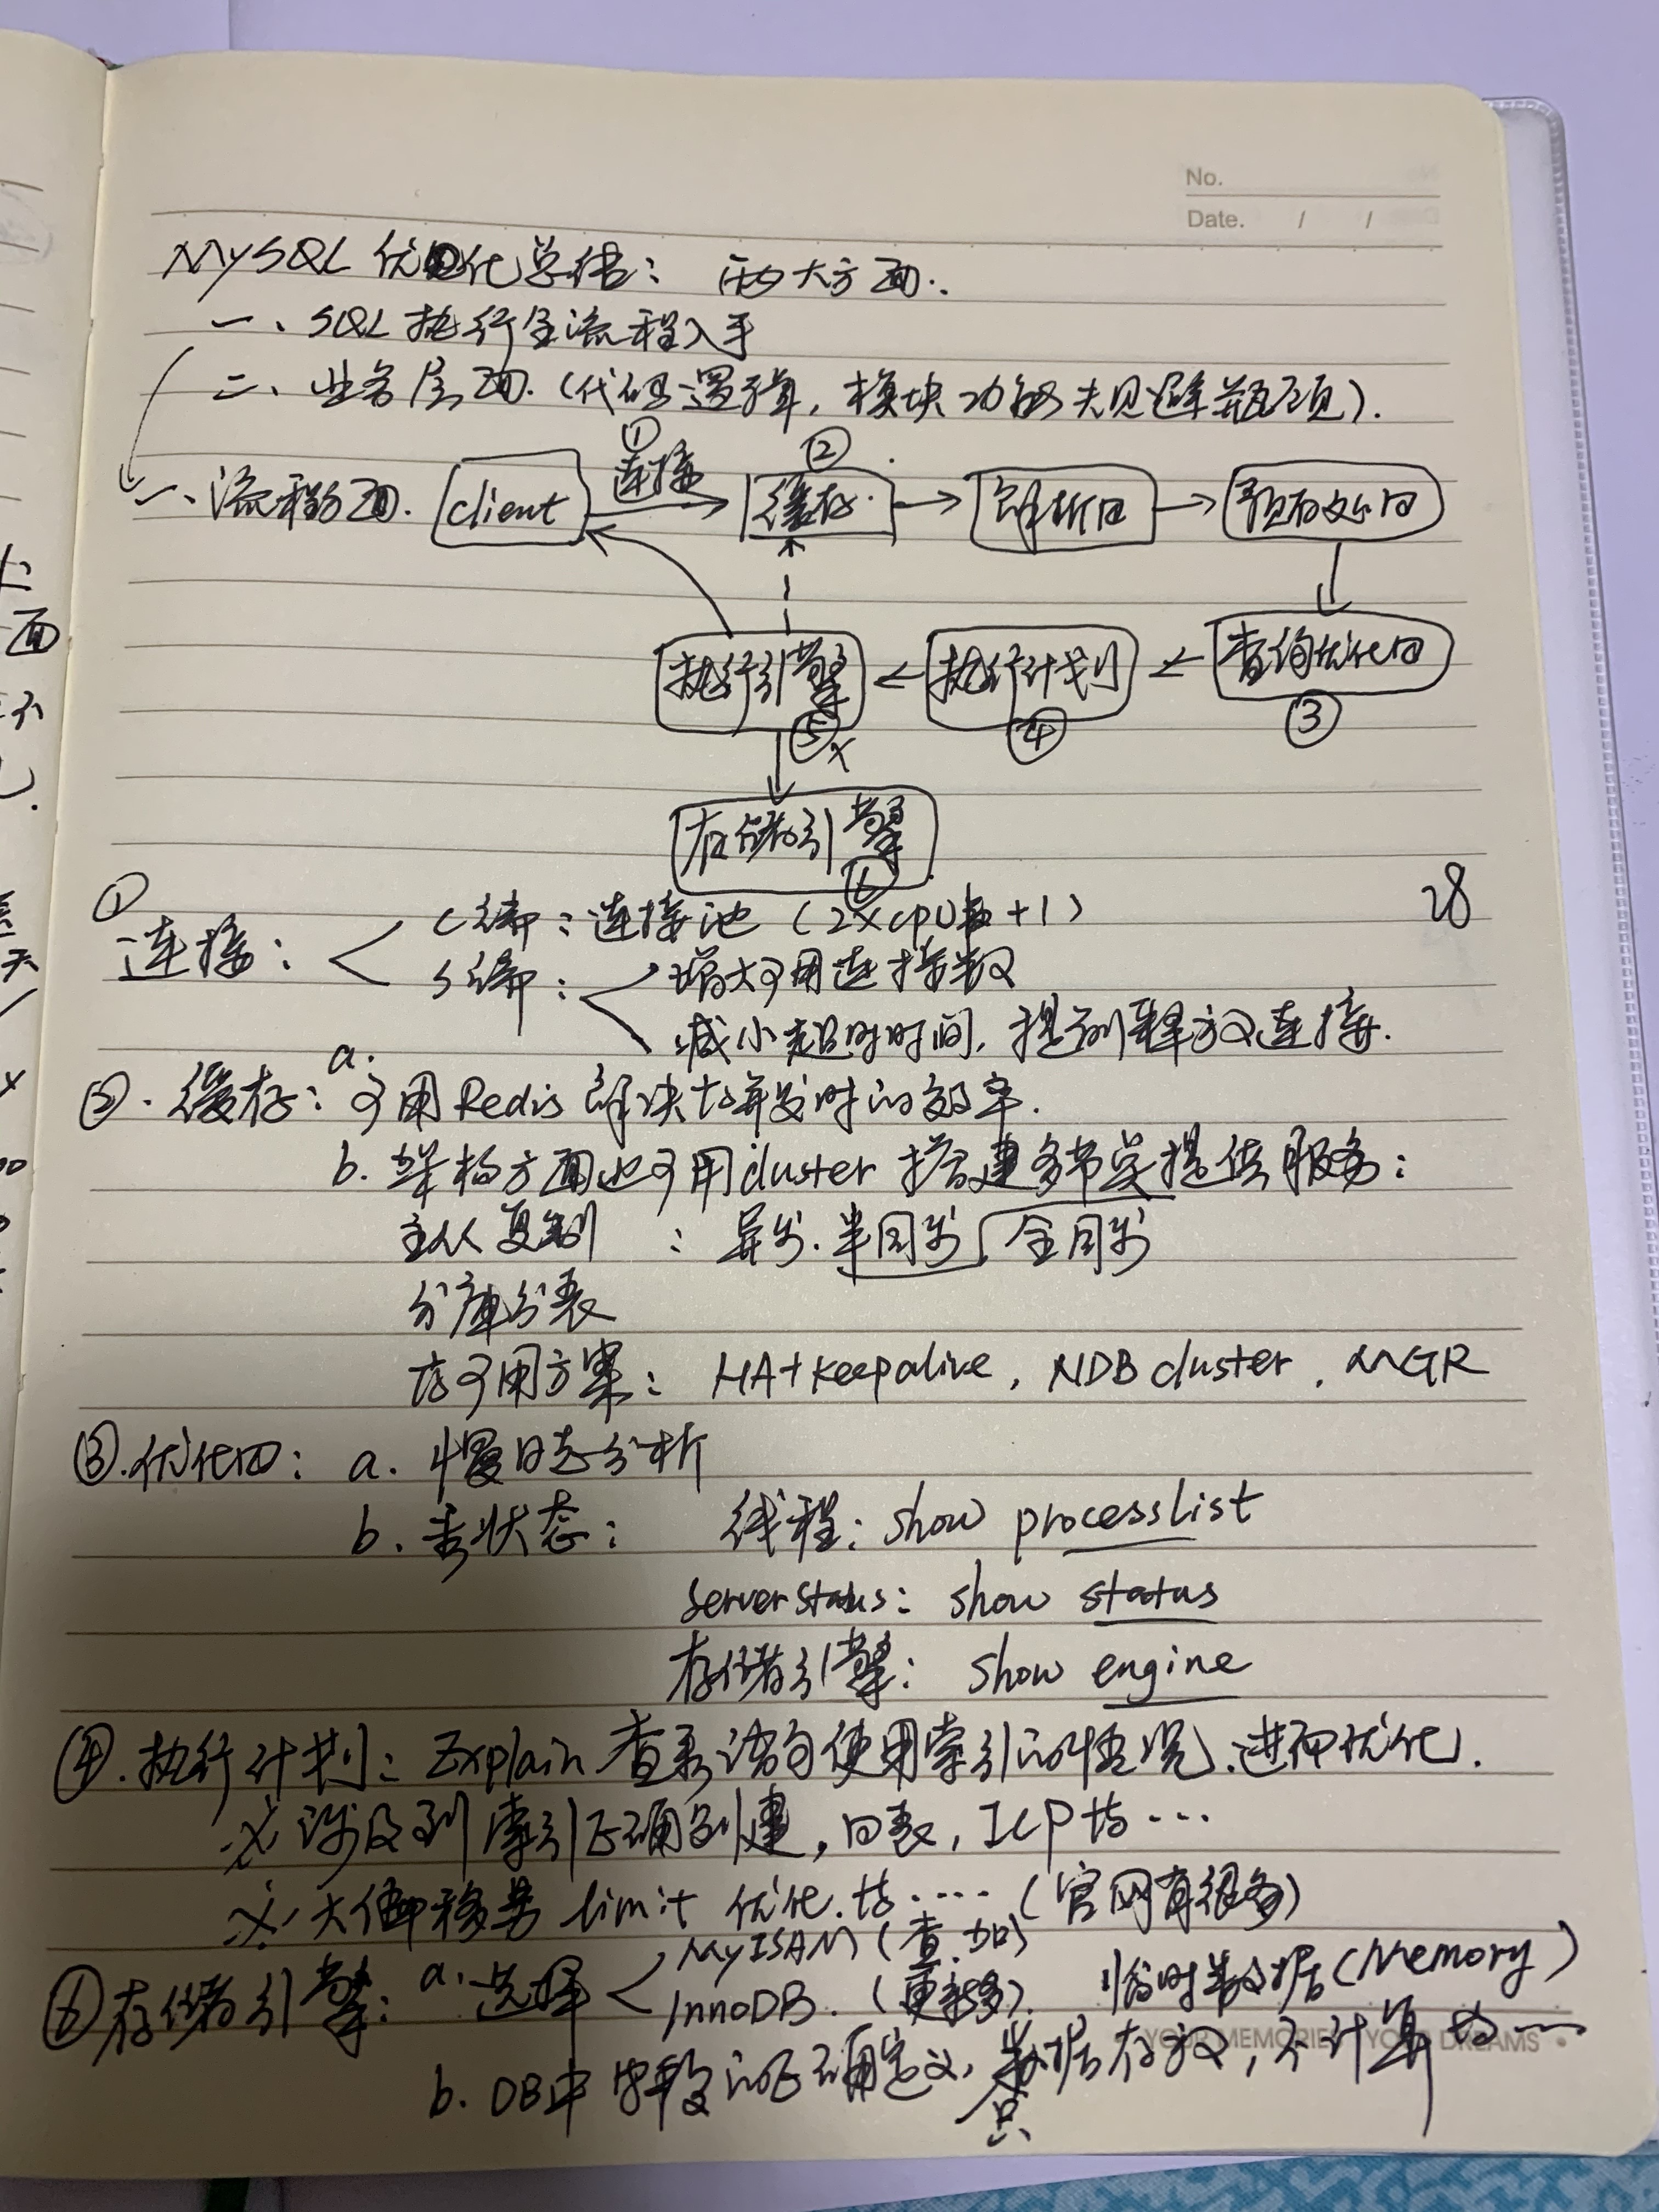 No.
Date. / /
MySQL 优化总结: 两大方面.
一、SQL 执行全流程入手
二、业务层面. (代码逻辑, 模块功能去见避瓶颈).
一、流程方面. client ①连接 ②缓存 解析口 预处口
执行引擎 ⑤x 执行计划 ④ 查询优化口 ③
存储引擎 ⑥
28
① 连接: C端: 连接池 (2xcpu数+1)
S端: 增大可用连接数
减小超时时间, 提到释放连接.
②. 缓存: a. 可用Redis解决高并发时的效率.
b. 架构方面也可用cluster 搭建多节点提供服务:
主从复制 : 异步. 半同步 全同步
分库分表
高可用方案: HA+keepalive, NDB cluster, MGR
③.优化口: a. 慢日志分析
b. 查状态: 线程: show processlist
Server status: show status
存储引擎: show engine
④.执行计划: Explain 查看语句使用索引的情况.进而优化.
※ 涉及到索引正确创建, 回表, ICP 等…
※ 大偏移量 limit 优化.等…. (官网有很多)
⑥存储引擎: a. 选择 MyISAM (查.加)
InnoDB. (更新多). 临时数据(Memory)
b. DB中字段的正确定义, 数据只存放, 不计算 等一
YOUR MEMORIES YOUR DREAMS